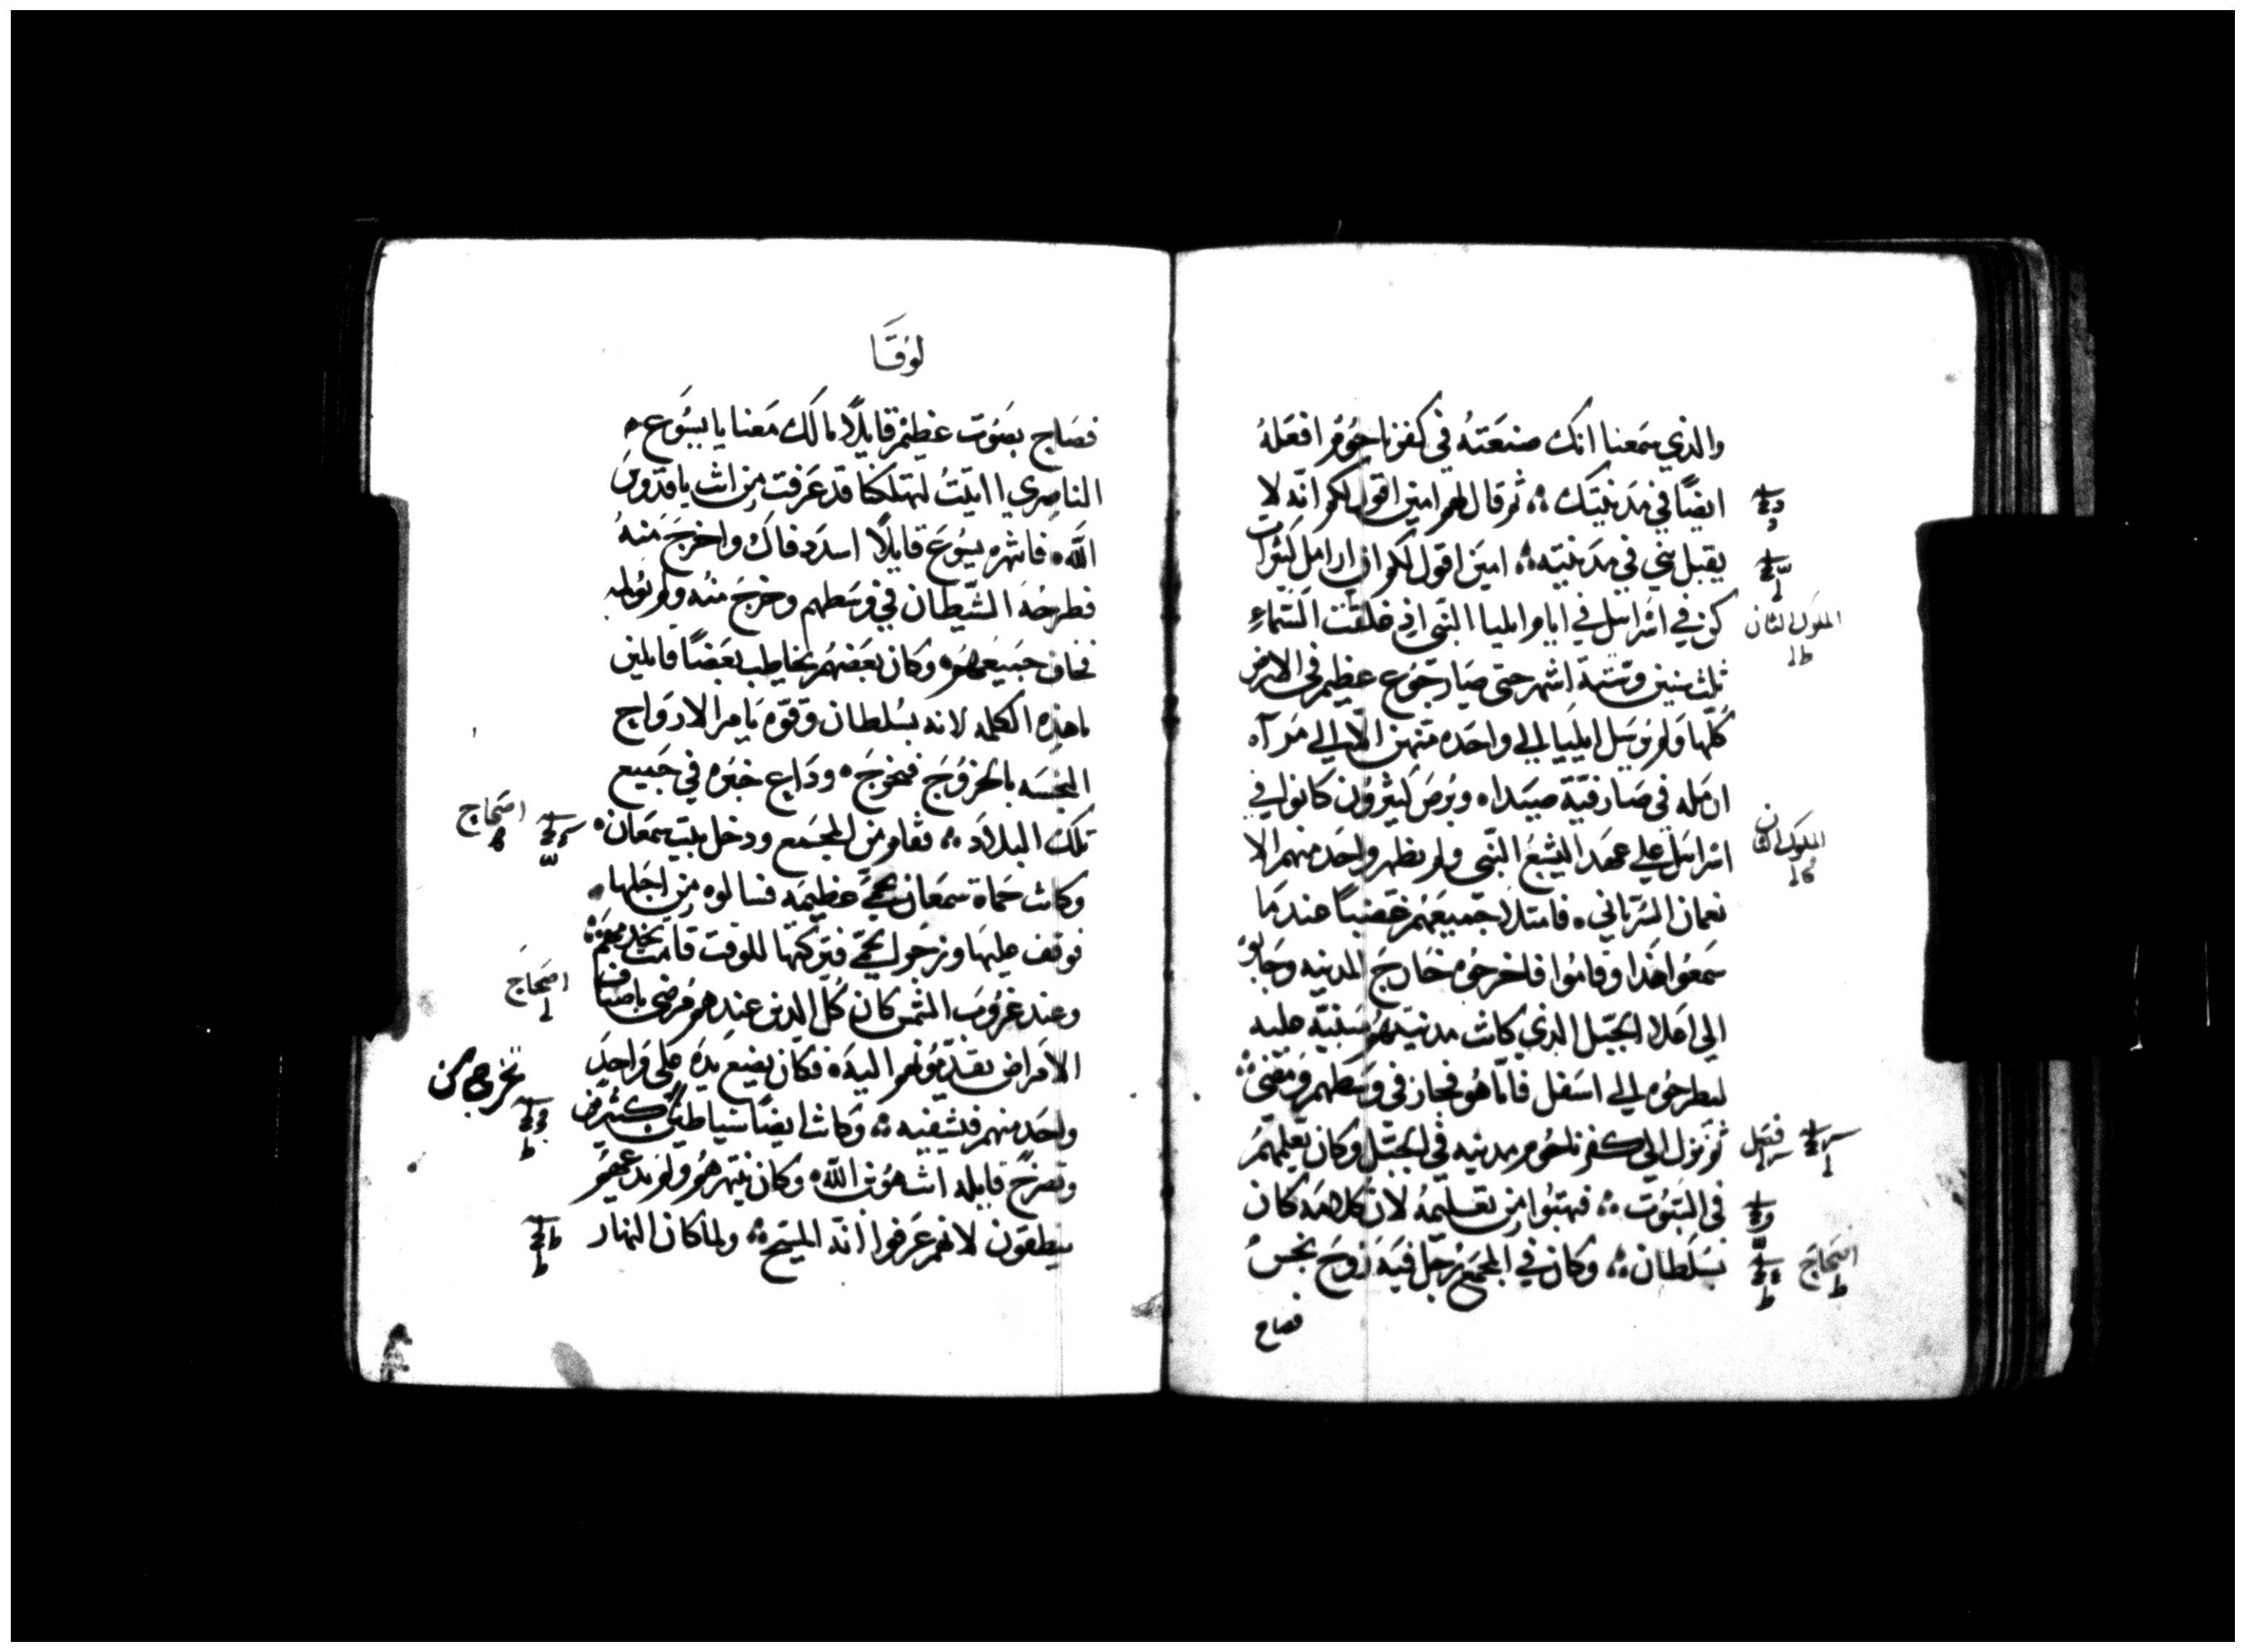 والذي سمعنا انك صنعته في كفرناحوم افعله
ايضًا في مدينتك ؞ ثم قال لهم امين اقول لكم انه لا
يقبل نبي في مدينته ؞ امين اقول لكم ان ارامل كثيرات
كن في اسراييل في ايام ايليا النبي اذ غلقت السماء
ثلث سنين وستة اشهر حتى صار جوع عظيم في الارض
كلها ولم يرسل ايليا الي واحده منهن الا الي مراه
ارمله في صارفية صيدا ه وبرص كثيرون كانوا في
اسراييل علي عهد اليشع النبي ولم يطهر واحد منهم الا
نعمان السرياني ه فامتلا جميعهم غضبًا عندما
سمعوا هذا وقاموا فاخرجوه خارج المدينه وجابوه
الي اعلا الجبل الذي كانت مدينتهم مبنية عليه
ليطرحوه الي اسفل فاما هو فجاز في وسطهم ومضى ؞
ثم نزل الي كفرناحوم مدينه في الجبل وكان يعلمهم
في السبوت ؞ فبهتوا من تعليمه لان كلامه كان
بسلطان ؞ وكان في المجمع رجل فيه روح نجس
فصاح
الملوك الثان
الملوك الثان
فصل
اصحاح
لوقا
فصاح بصوت عظيم قايلًا مالك معنا يا يسوع ه
الناصري اتيت لتهلكنا قد عرفت من انت يا قدوس
الله ه فانتهره يسوع قايلًا اسدد فاك واخرج منه
فطرحه الشيطان في وسطهم وخرج منه ولم يولمه
فخاف جميعهم ه وكان بعضهم يخاطب بعضًا قايلين
ما هذه الكلمه لانه بسلطان وقوه يامر الارواح
النجسه بالخروج فتخرج ه وذاع خبره في جميع
تلك البلاد ؞ فقام من المجمع ودخل بيت سمعان ه
وكانت حماة سمعان بحمي عظيمه فسالوه من اجلها ه
فوقف عليها وزجر الحمي فتركتها للوقت قامت تخدمهم ؞
وعند غروب الشمس كان كل الذين عندهم مرضي باصناف
الامراض يقدمونهم اليه ه فكان يضع يده علي واحد
واحد منهم فيشفيه ؞ وكانت ايضًا شياطين تخرج من كثيرين
وتصرخ قايله انت هو بن الله ه وكان ينتهرهم ولم يدعهم
ينطقون لانهم عرفوا انه المسيح ؞ ولما كان النهار
اصحاح
اصحاح
تخرج من